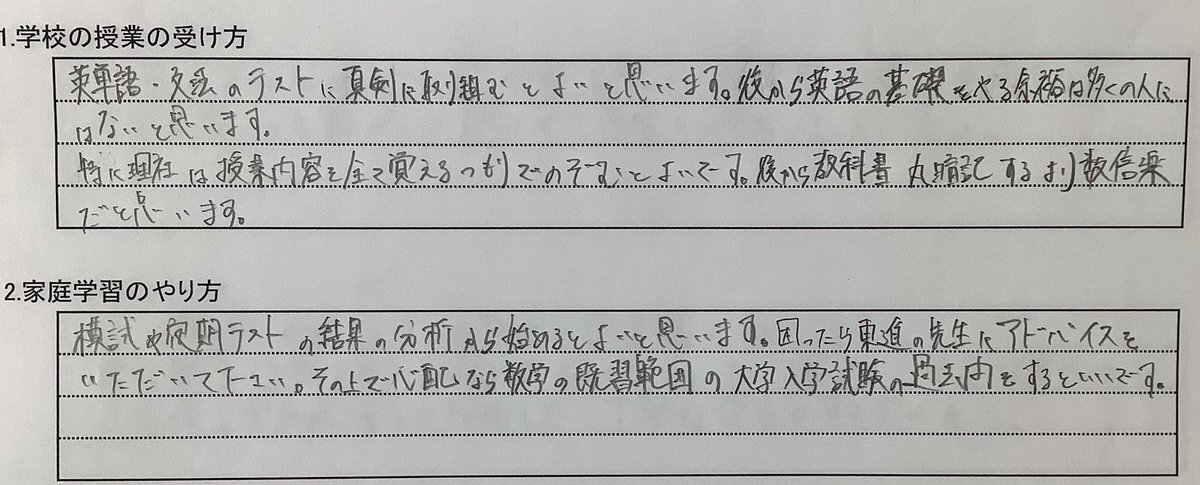 1.学校の授業の受け方
英単語・文法のテストに真剣に取り組むとよいと思います。後から英語の基礎をやる余裕は多くの人に
はないと思います。
特に理社は授業内容を全て覚えるつもりでのぞむとよいです。後から教科書丸暗記するより数倍楽
だと思います。
2.家庭学習のやり方
模試や定期テストの結果の分析から始めるとよいと思います。困ったら東進の先生にアドバイスを
いただいて下さい。その上で心配なら数学の既習範囲の大学入学試験の過去問をするといいです。